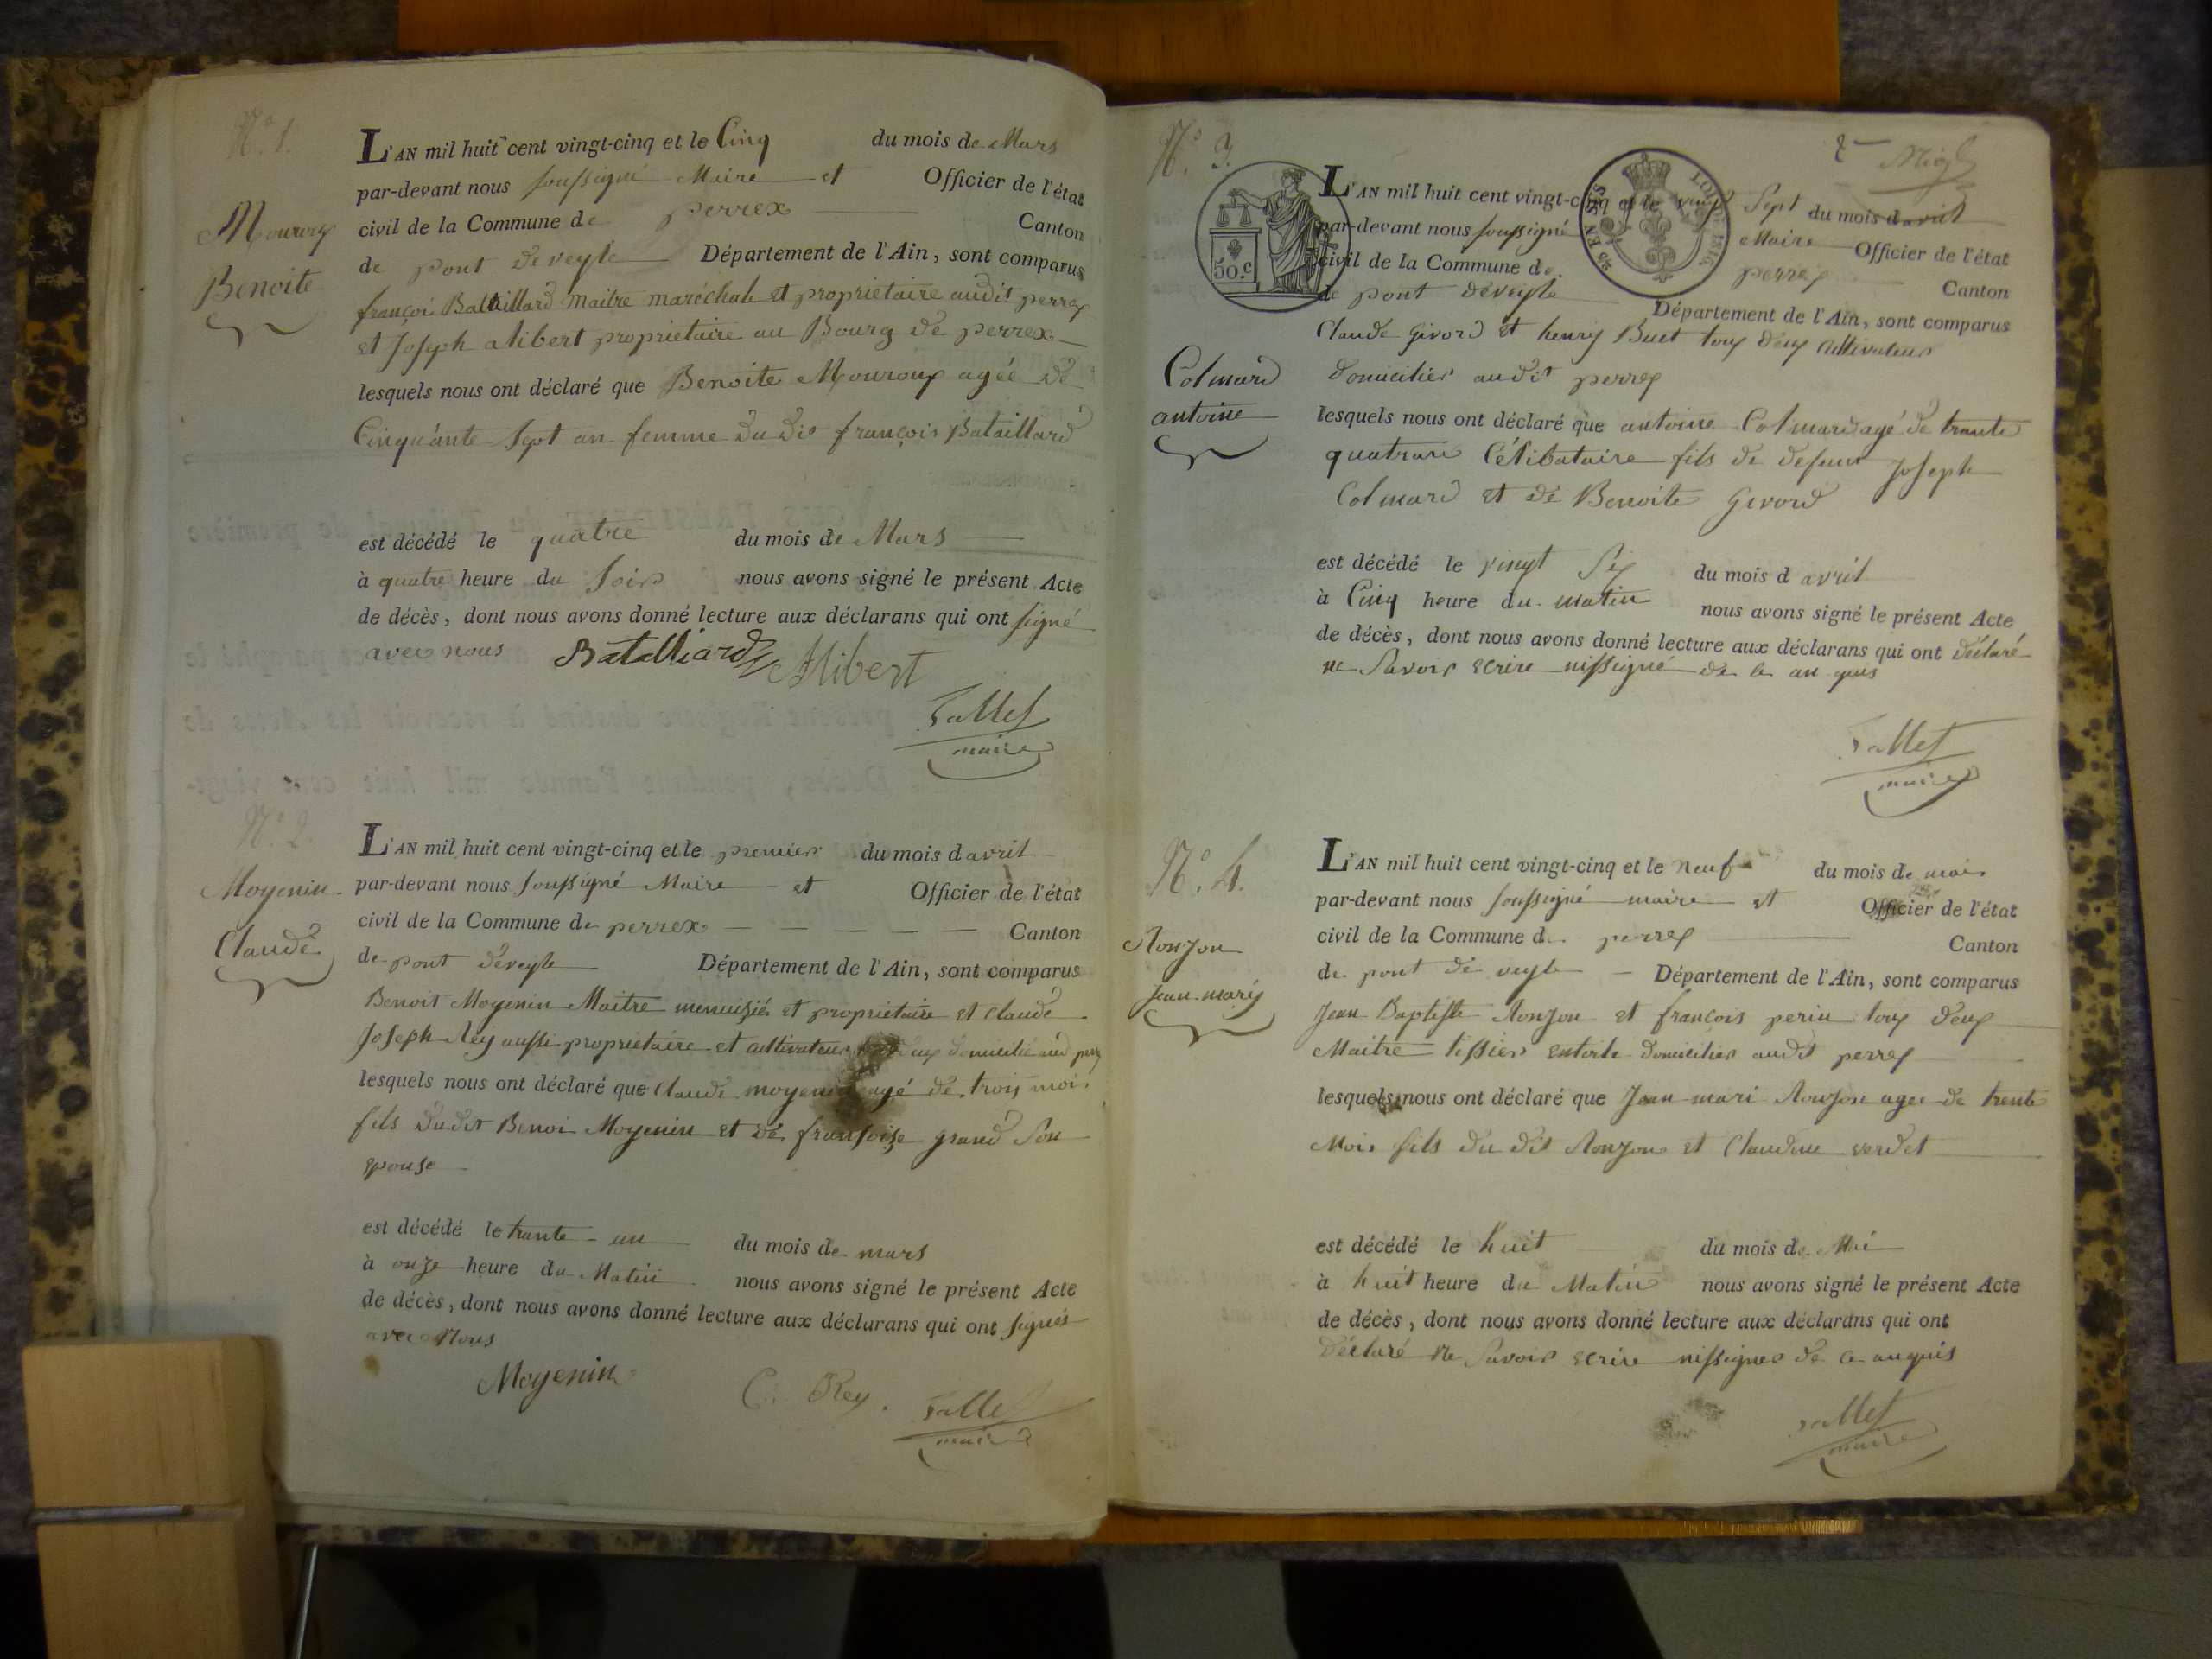 N.º 1.
Mouroux
Benoite
L'AN mil huit cent vingt-cinq et le Cinq du mois de Mars
par-devant nous soussigné Maire et Officier de l'état
civil de la Commune de perrex Canton
de pont deveyle Département de l'Ain, sont comparus
françoi Bataillard maitre maréchale et propriétaire audit perrex
et Joseph alibert propriétaire au Bourg de perrex
lesquels nous ont déclaré que Benoite Mouroux agéé de
Cinquante Sept an femme du dit françois Bataillard
est décédé le quatre du mois de Mars
à quatre heure du Soir nous avons signé le présent Acte
de décès, dont nous avons donné lecture aux déclarans qui ont signé
avec nous Batalliard Alibert
maire
N.º 2.
Moyenin
Claude
L'AN mil huit cent vingt-cinq et le premier du mois d avril
par-devant nous soussigné Maire et Officier de l'état
civil de la Commune de perrex Canton
de pont deveyle Département de l'Ain, sont comparus
Benoit Moyenin Maitre menuizié et propriétaire et claude
Joseph Rey aussi propriétaire et cultivateur domicilié
lesquels nous ont déclaré que Claude moyenin agé de trois mois
fils dudit Benoi Moyenin et de françoise grand Son
epouse
est décédé le trante un du mois de mars
à onze heure du Matin nous avons signé le présent Acte
de décès, dont nous avons donné lecture aux déclarans qui ont signés
avec Nous
Moyenin C. Rey.
maire
N.º 3.
50.c
LOI DE 1816
Colmard
antoine
L'AN mil huit cent vingt-cinq et le vingt Sept du mois d avril
par-devant nous soussigné Maire Officier de l'état
civil de la Commune de perrex Canton
de pont deveyle Département de l'Ain, sont comparus
Claude givord et henry Buet toux deux cultivateurs
domicilies audit perrex
lesquels nous ont déclaré que antoine Colmard agé de trante
quatran Célibataire fils de defunt Joseph
Colmard et de Benoite Gevord
est décédé le vingt Six du mois d avril
à Cinq heure du matin nous avons signé le présent Acte
de décès, dont nous avons donné lecture aux déclarans qui ont déclaré
ne Savoir ecrire nissigné de ce an quis
maire
N.º 4.
Ronjon
Jean-mary
L'AN mil huit cent vingt-cinq et le neuf du mois de mai
par-devant nous soussigné maire et Officier de l'état
civil de la Commune de perrex Canton
de pont de veyle Département de l'Ain, sont comparus
Jean Baptiste Ronjon et françois perin toux deux
Maitre tissier entoile domicilier audit perrex
lesquels nous ont déclaré que Jean-mari Ronjon agee de trente
Mois fils du dit Ronjon et Claudine verdet
est décédé le huit du mois de Mai
à huit heure du Matin nous avons signé le présent Acte
de décès, dont nous avons donné lecture aux déclarans qui ont
déclaré ne Savoir ecrire nissigner de ce anquis
maire